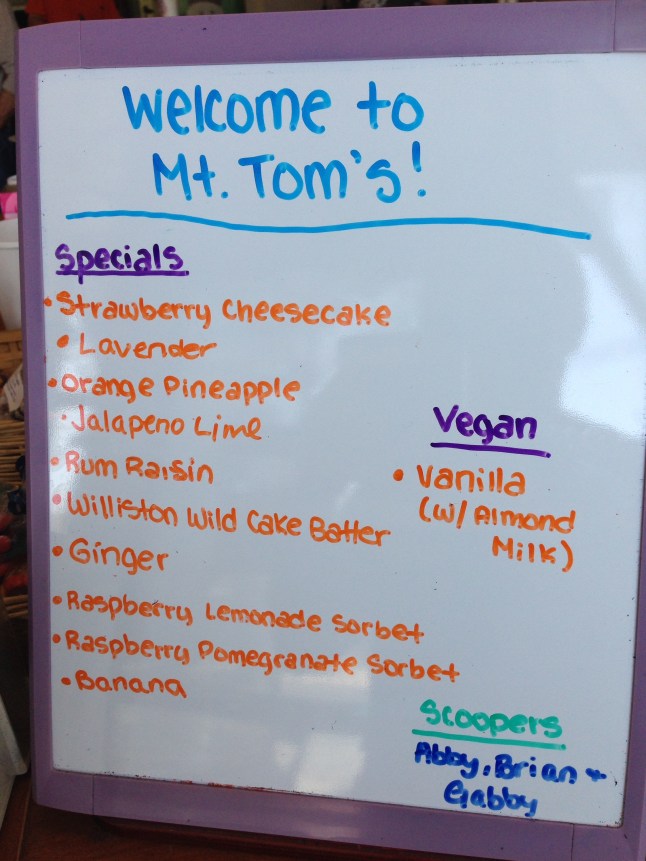 Welcome to
Mt. Tom's!
Specials
• Strawberry Cheesecake
• Lavender
• Orange Pineapple
• Jalapeno Lime
• Rum Raisin
• Williston Wild Cake Batter
• Ginger
• Raspberry Lemonade Sorbet
• Raspberry Pomegranate Sorbet
• Banana
Vegan
• Vanilla
(w/ Almond
Milk)
Scoopers
Abby, Brian +
Gabby